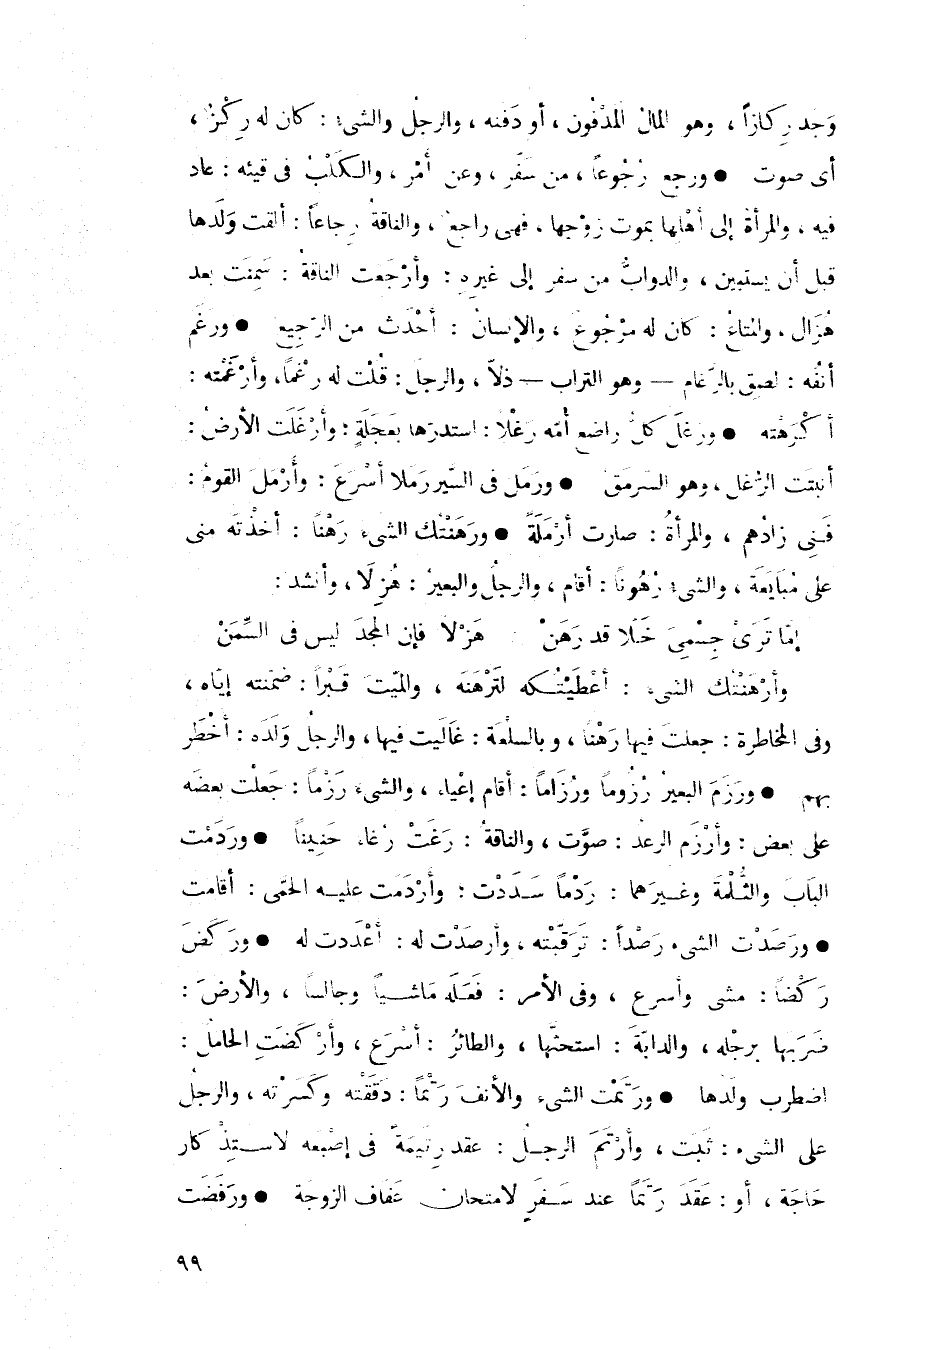 وَجد رِكَازاً ، وهو المالُ المَدْفُون ، أو دَفنه ، والرجلُ والشىءُ : كان له رِكْزٌ ،
أى صوت ● ورجع رُجُوعاً ، من سَفَر ، وعن أَمْر ، والكَلْبُ فى قيئه : عاد
فيه ، والمرأةُ إلى أهْلِها بموت زوْجها ، فهى راجعٌ ، والناقةُ رِجاعاً : ألقت وَلَدها
قبل أن يستبين ، والدوابُّ من سفر إلى غيرِه : وأرْجَعت الناقةُ : سَمِنَت بعد
هُزَال ، والمتاعُ : كان له مرْجُوعٌ ، والإنسانُ : أحْدَث من الرّجِيع ● ورغَم
أنفُه : لصق بالرَّغام — وهو التراب — ذلاّ ، والرجلَ : قُلْت له رغْماً، وأرْغَمْته :
أكْرَهْته ● ورغلَ كلُّ راضع أمّه رَغْلا : استدرّها بعَجَلَةٍ ؛ وأرْغَلَت الأرضُ :
أنبتت الرُّغل ، وهو السّرمَق ● ورَمَل فى السَّير رَمَلا أسْرَعَ : وأَرْمَلَ القومُ :
فَنِى زادُهم ، والمرأةُ : صارت أرْمَلَةً ● ورَهَنْتُك الشىءَ رَهْناً : أخذْتَه منى
على مُبَايَعَة ، والشىءُ رُهُوناً : أقام ، والرجلُ والبعيرُ : هُزِلَا ، وأنشد :
إمَّا تَرَىْ جِسْمِىَ خَلًا قد رَهَنْ هَزْلًا فإن المجدَ ليس فى السِّمَنْ
وأرْهَنْتُك الشىءَ : أعْطَيْتُكه لتَرْهَنَه ، والميّتَ قَبْراً : ضمّنته إيّاه ،
وفى المخاطرة : جعلتَ فيها رَهْنًا ، وبالسلْعَة : غَالَيت فيها ، والرجلُ وَلَدَه : أخْطَر
بهم ● ورَزَمَ البعيرُ رُزُوماً ورُزَاماً : أقام إعْياءً ، والشىءَ رَزْماً : جَعلْت بعضَه
على بعض : وأرْزَم الرعدُ : صوَّت ، والناقةُ : رَغَتْ رُغاءً حَنِيناً ● ورَدَمْت
البَابَ والثُّلْمَةَ وغيرَهما : رَدْماً سَدَدْت : وأرْدَمَت عليه الحمّى : أقامت
● ورَصَدْت الشىءَ رَصْداً : تَرَقّبْته ، وأرصَدْت له : أعْدَدت له ● ورَكَضَ
رَكْضاً : مشى وأسرع ، وفى الأمر : فَعَلَه مَاشياً وجالساً ، والأرضَ :
ضَرَبها برجْله ، والدابّةَ : استحثّها ، والطائرُ : أسْرَع ، وأرْكَضَتِ الحاملُ :
اضطرب ولَدها ● ورَتَمْت الشىءَ والأنفَ رَتْماً : دَقَقْته وكَسَرْته ، والرجلُ
على الشىء : ثَبَت ، وأرْتَمَ الرجلُ : عقد رتيمَةً فى إصْبعَه لاستذْكار
حَاجَة ، أو : عَقَدَ رَتَمَاً عند سَفَرٍ لامتحان عَفاف الزوجَة ● ورَفَضَت
٩٩